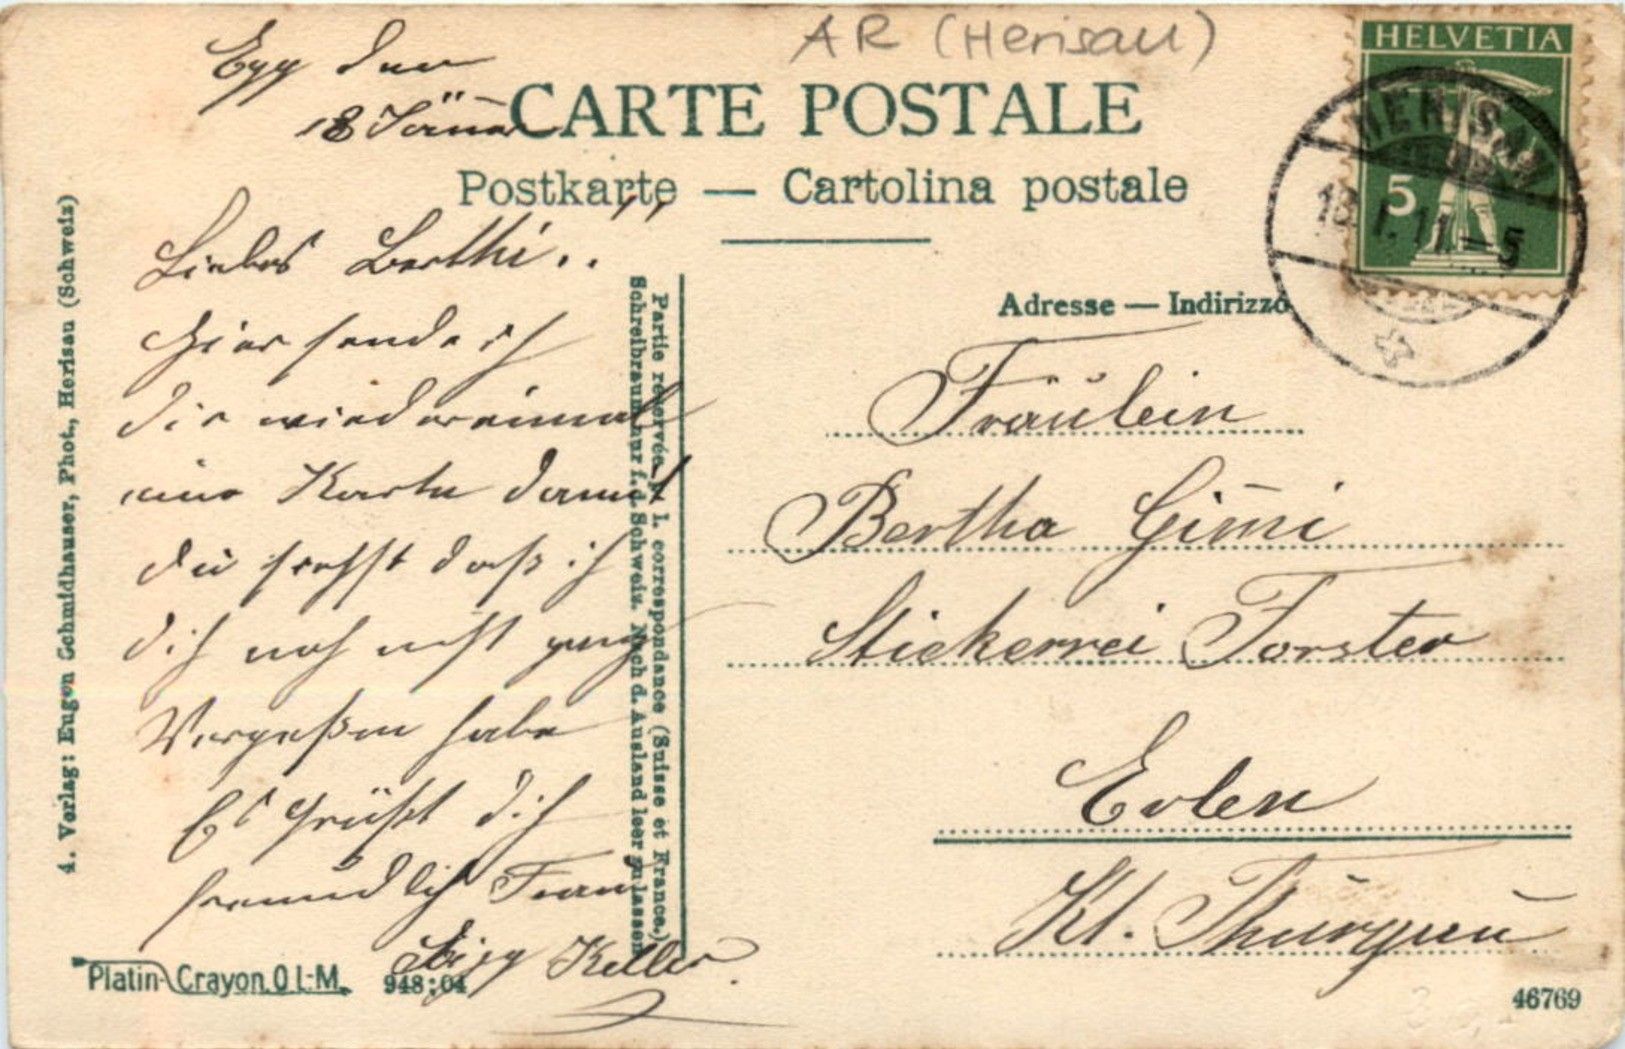 AR (Herisau)
HELVETIA
5
HERISAU
18.I.11.-5
Egg den
18 Jänn
CARTE POSTALE
Postkarte — Cartolina postale
Adresse — Indirizzo
Liebes Berthi..
Hier sende ich
dir wiedereinmal
eine Karte damit
du sehst daß ich
dich noch nicht ganz
Vergeßen habe
Es Grüßt dich
freundlich
Keller
Partie réservée à l. correspondance (Suisse et France.)
Schreibraum nur f. d. Schweiz. Nach d. Ausland leer zulassen
Fräulein
Bertha Gimi
Stickerrei Forster
Erlen
Kt. Thurgau
4. Verlag: Eugen Schmidhauser, Phot., Herisau (Schweiz)
Platin-Crayon O L-M.
948:04
46769